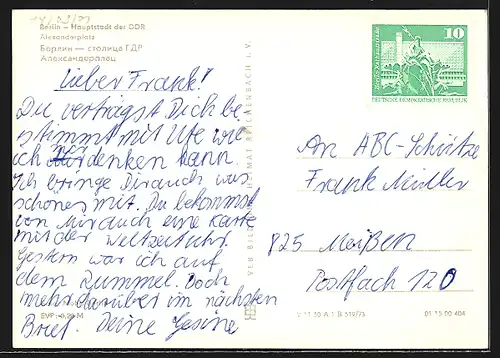 Berlin – Hauptstadt der DDR
Alexanderplatz
Берлин — столица ГДР
Александерплац
Lieber Frank!
Du verträgst Dich be
stimmt mit Ute wie
ich denken kann.
Ich bringe Dir auch was
schönes mit. Du bekommst
von mir auch eine Karte
mit der Weltzeituhr.
Gestern war ich auf
dem Rummel. Doch
mehr darüber im nächsten
Brief. Deine Gesine
EVP: 0,20 M
VEB BILD UND HEIMAT REICHENBACH i. V.
V 11 50 A 1 B 519/75
01 15 00 404
10
DEUTSCHE DEMOKRATISCHE REPUBLIK
An ABC-Schütze
Frank Müller
825 Meißen
Postfach 120